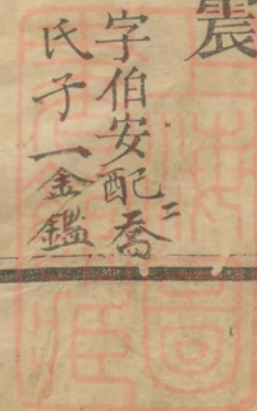 震
字伯安配喬
氏子一金鑑